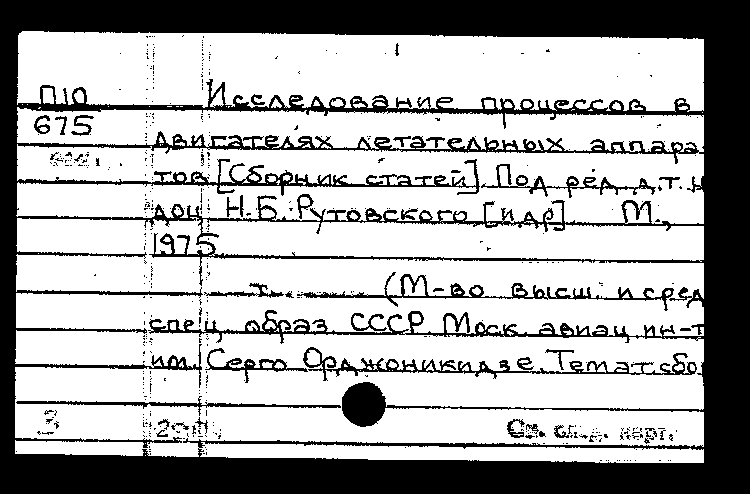 П10
675
Исследование процессов в
двигателях летательных аппара-
тов [Сборник статей]. Под ред. д.т.н
доц. Н.Б. Рутовского [и др]. М.,
1975.
т. (М-во высш. и сред
спец. образ. СССР. Моск. авиац. ин-т
им. Серго Орджоникидзе. Темат. сбор
3 290
См. след. карт.